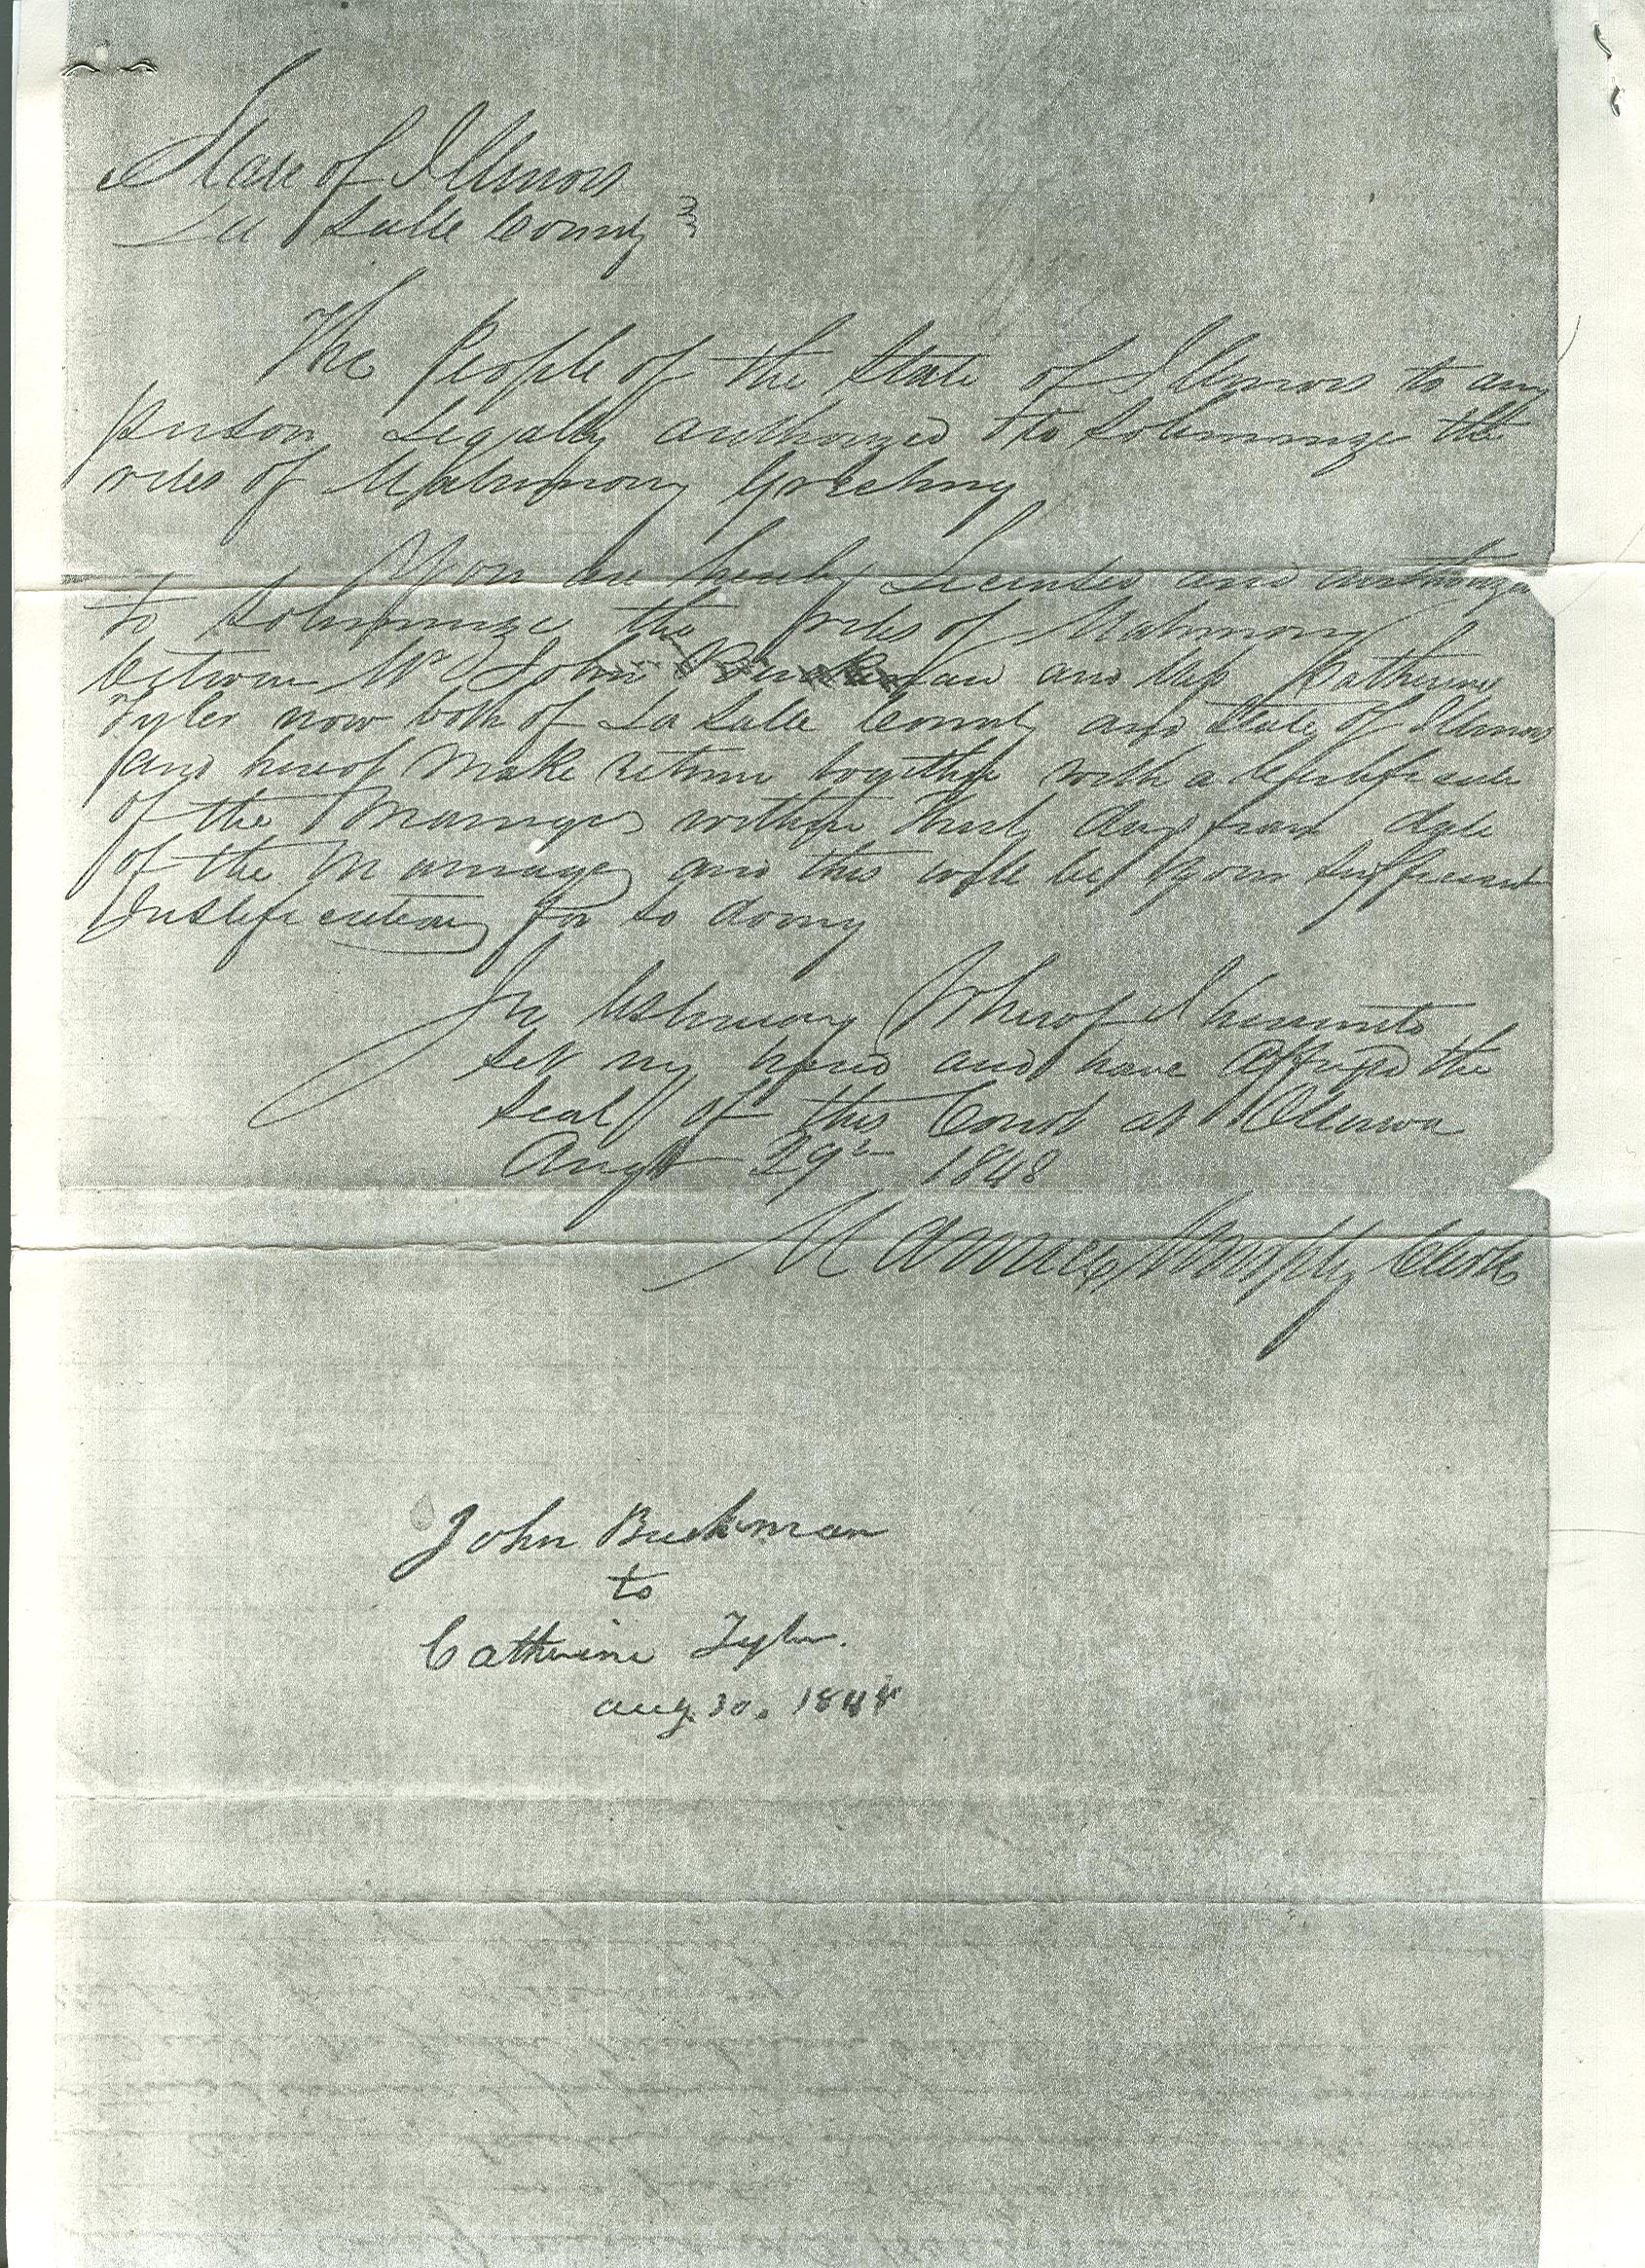 State of Illinois
La Salle County
The People of the State of Illinois to any
person Legally authorized to solemnize the
rites of Matrimony Greeting
You are hereby Licensed and authorized
to solemnize the rites of Matrimony
between Mr John and Miss Katherine
Tyler now both of La Salle County and State of Illinois
and hereof make return together with a Certificate
of the Marriage within thirty days from date
of the Marriage and this will be your sufficient
Justification for so doing
In testimony Whereof I hereunto
set my hand and have affixed the
seal of this Court at Ottawa
Augt 29th 1848
Murphy Clerk
John Buckman
to
Catherine Tyler.
aug. 30. 1848